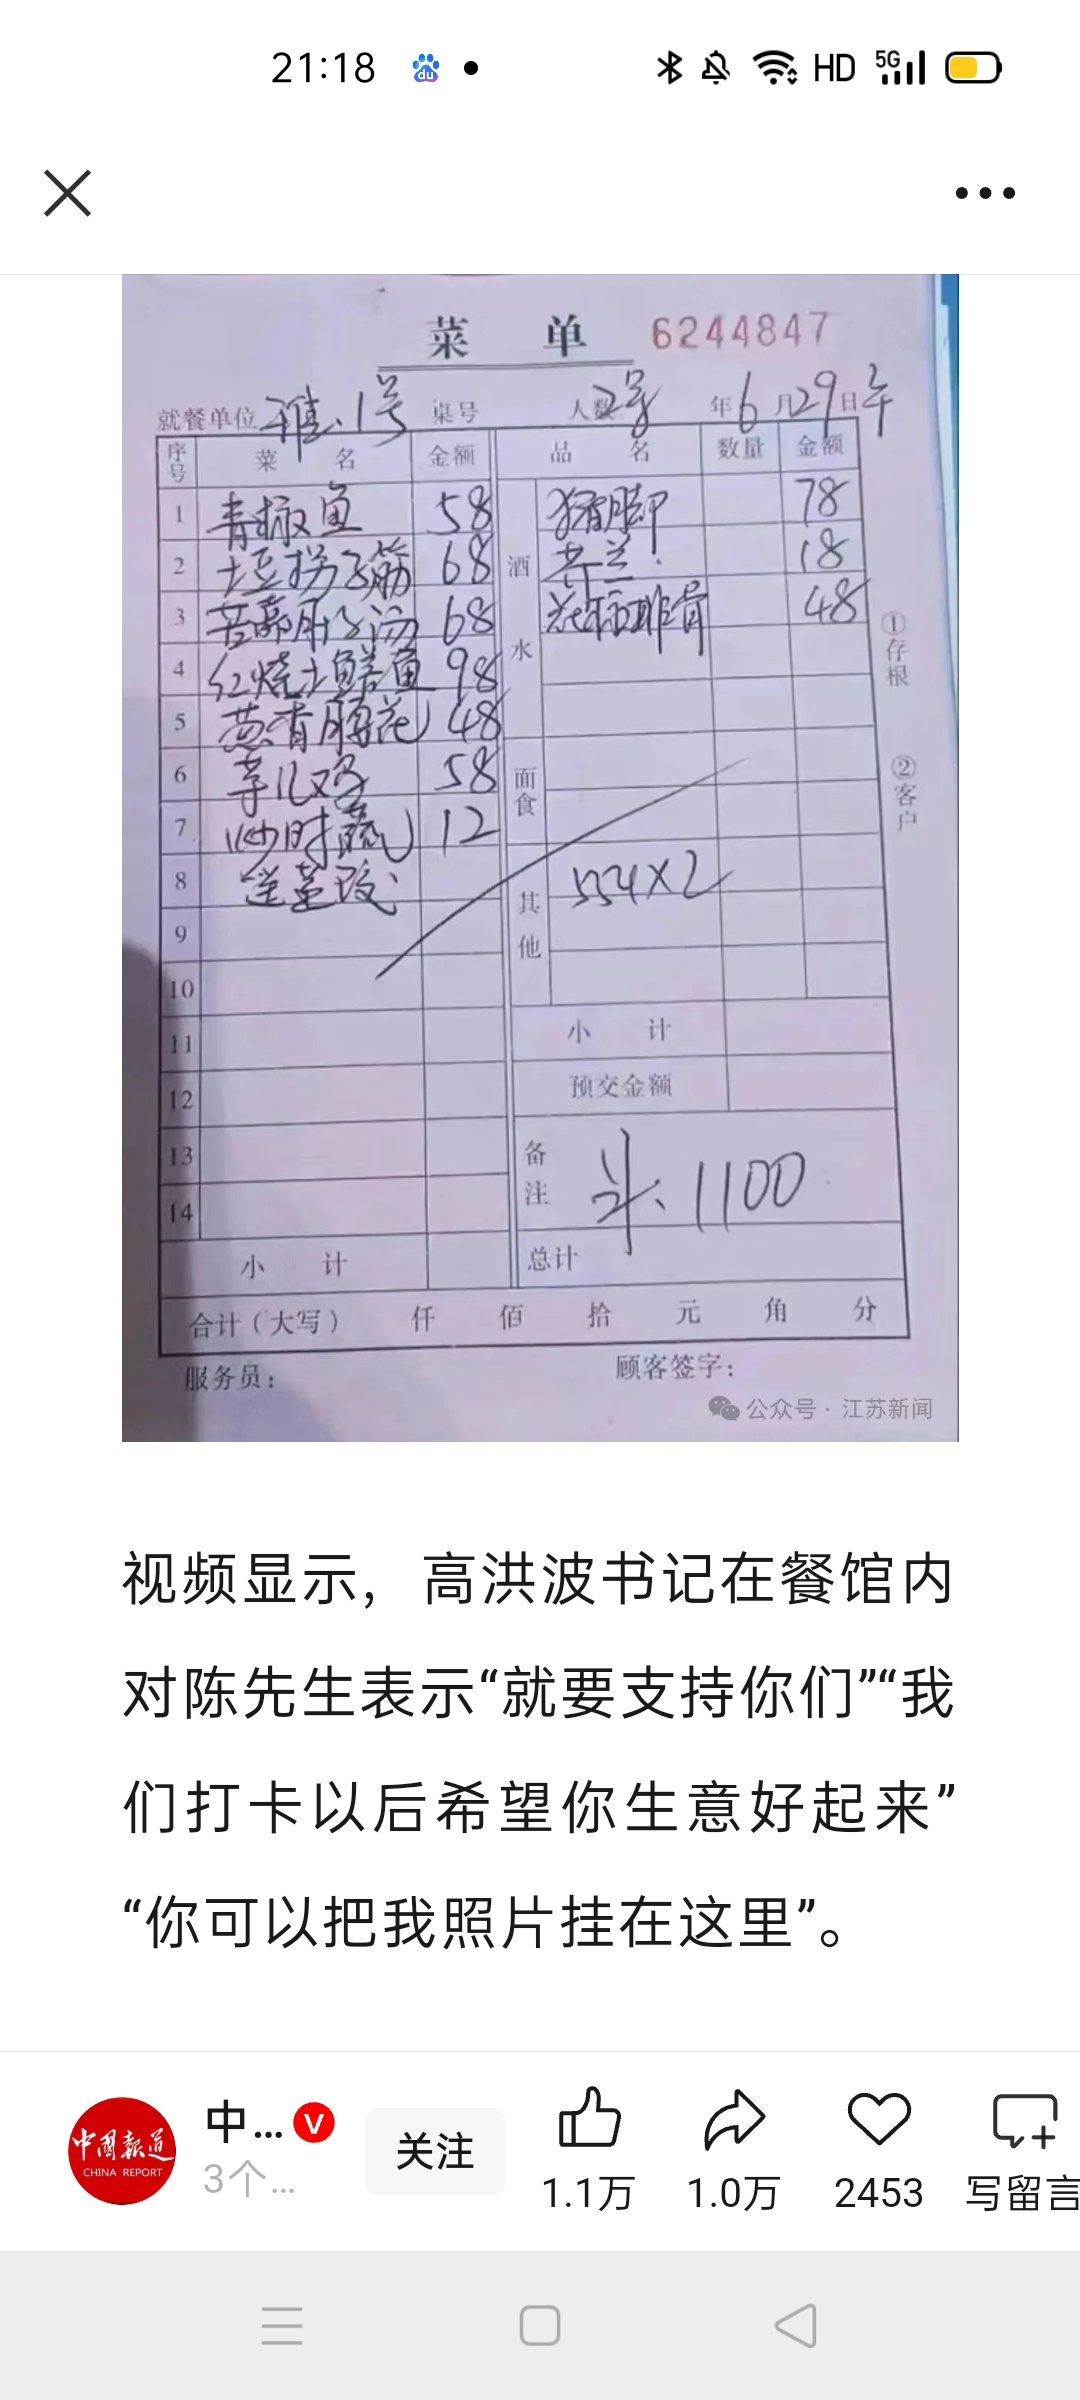 21:18 HD 5G
菜 单 6244847
就餐单位 雅.1号 桌号 人数 2号 年6月29日午
序号 菜 名 金额 品 名 数量 金额
1 青椒鱼 58 酒水 猪脚 78
2 土豆拐子筋 68 18
3 肝子汤 68 排骨 48
4 红烧土鳝鱼 98
5 葱香腰花 48
6 芋儿鸡 58 面食
7 炒时蔬 12
8 其他 554×2
9
10
11 小 计
12 预交金额
13 备注 1100
14
小 计 总计
合计(大写) 仟 佰 拾 元 角 分
服务员: 顾客签字:
①存根
②客户
公众号 · 江苏新闻
视频显示，高洪波书记在餐馆内
对陈先生表示“就要支持你们”“我
们打卡以后希望你生意好起来”
“你可以把我照片挂在这里”。
中國報道 CHINA REPORT
中... V
3个...
关注
1.1万 1.0万 2453 写留言